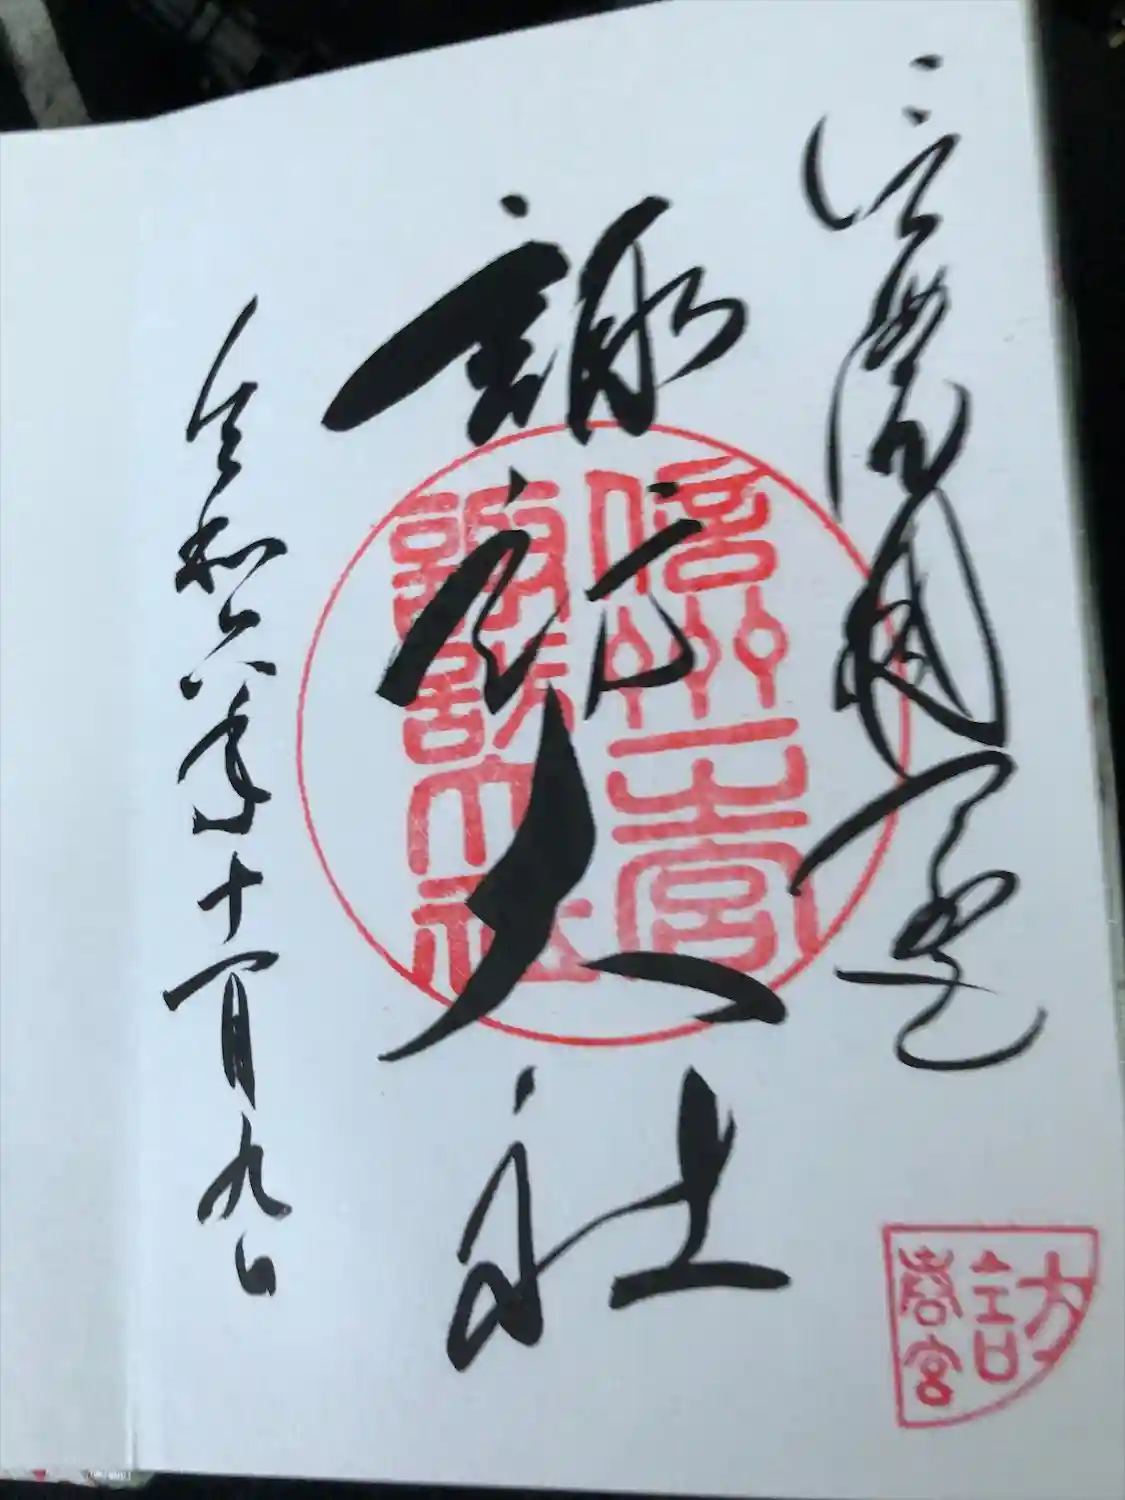 信濃國
諏訪大社
令和六年十一月九日
信州一之宮
諏訪大社
訪
春宮